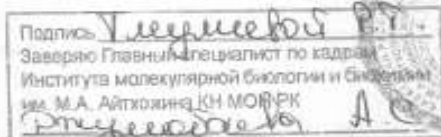 Подпись
Заверяю Главный специалист по кадрам
Института молекулярной биологии и биохимии
им. М.А. Айтхожина КН МОН РК